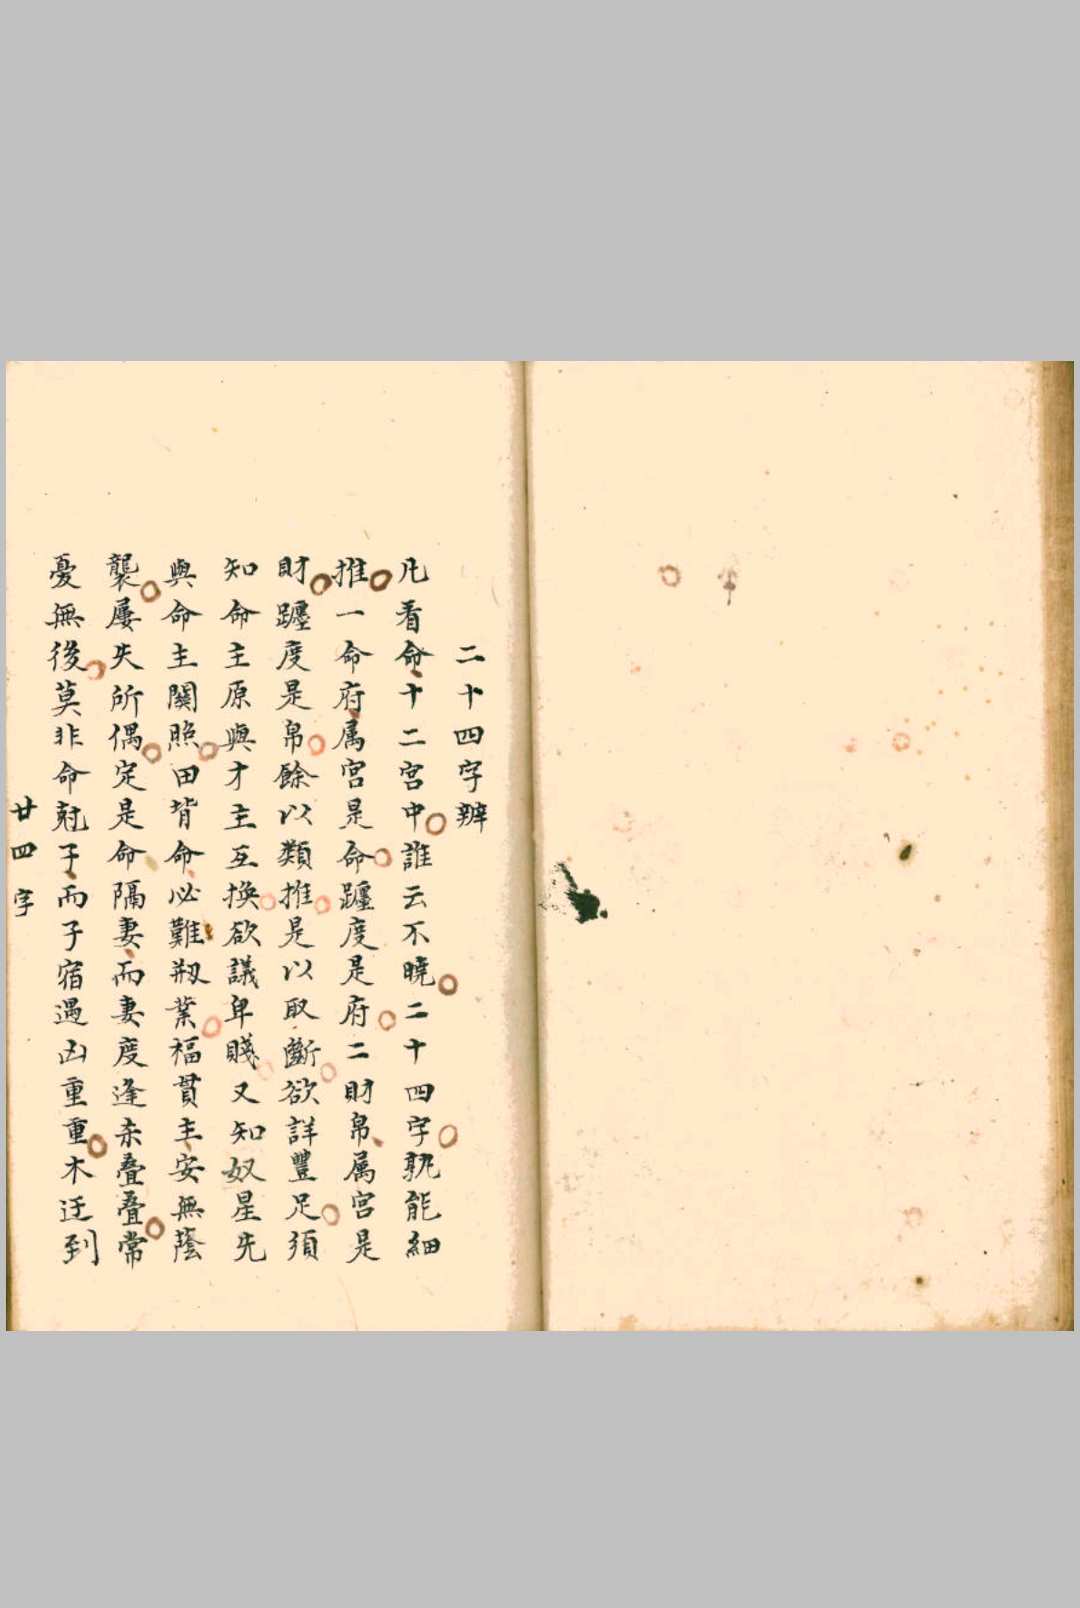 二十四字辨
凡看命十二宮中誰云不曉二十四字孰能細
推一命府属宮是命躔度是府二財帛属宮是
財躔度是帛餘以類推是以取斷欲詳豐足須
知命主原與才主互換欲議卑賤又知奴星先
與命主關照田背命必難剏業福貫主安無蔭
襲屢失所偶定是命隔妻而妻度逢奈疊疊常
憂無後莫非命尅子而子宿遇凶重重木迁到
廿四字